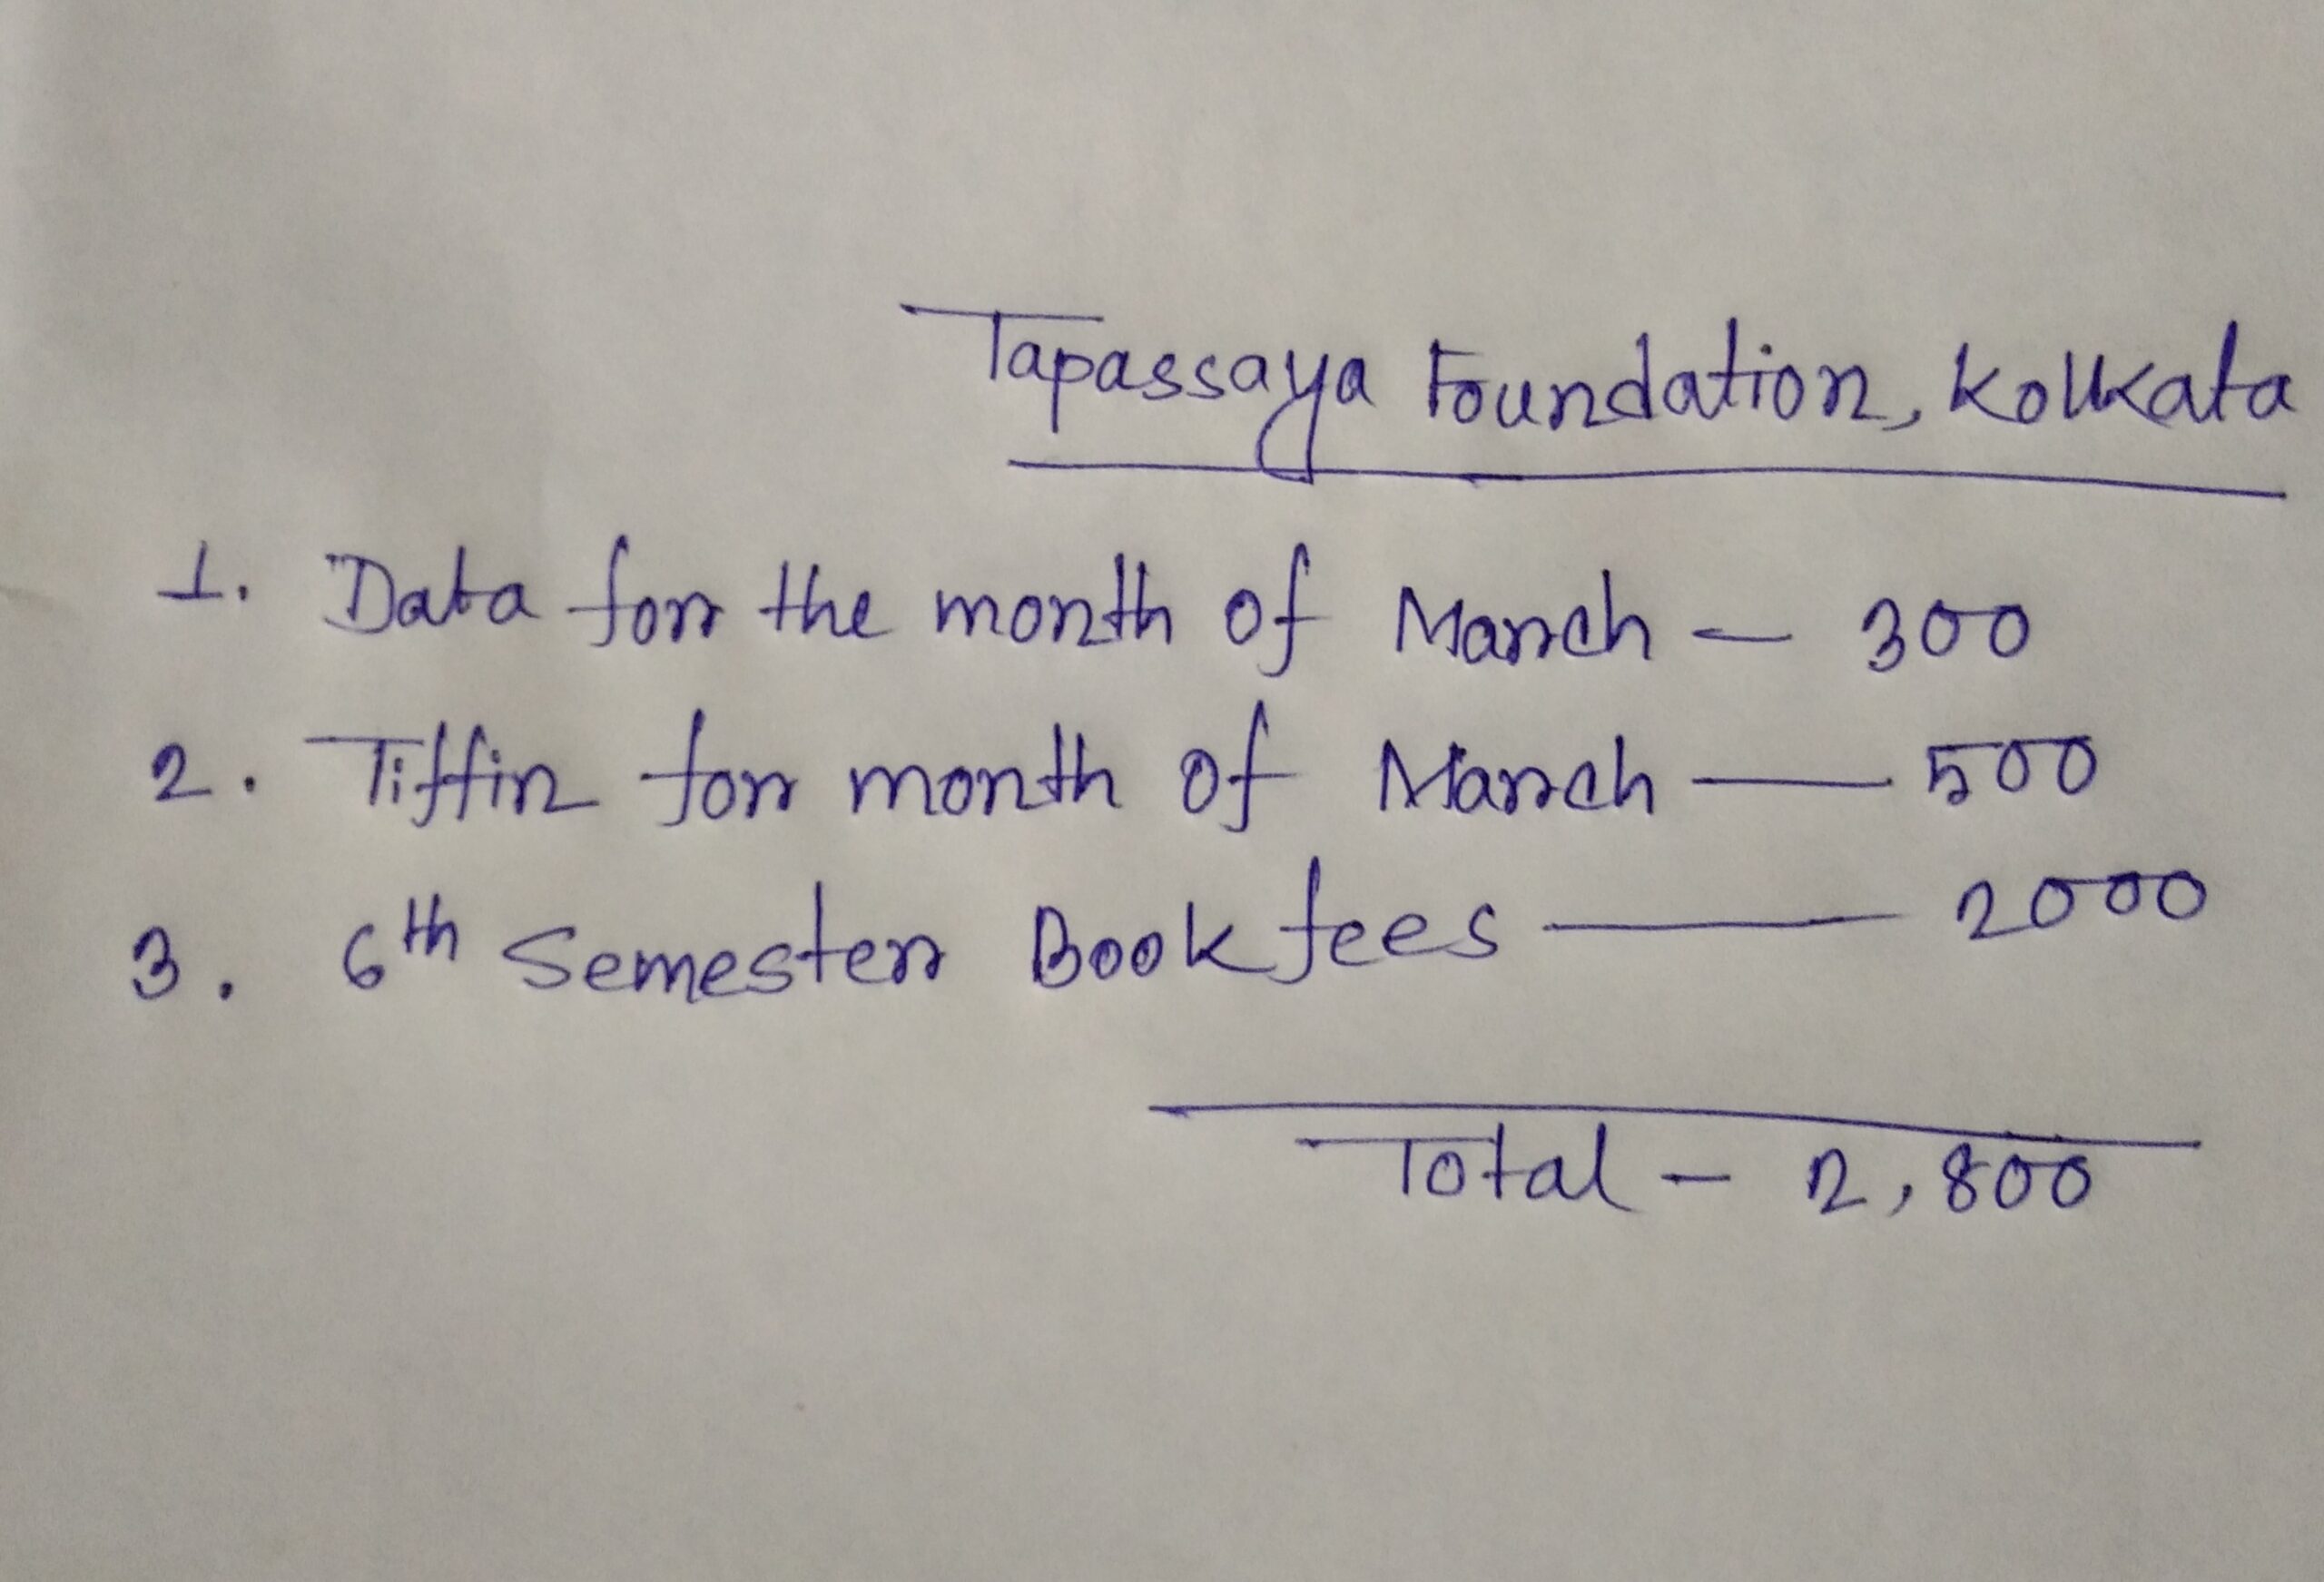 Tapassaya Foundation, Kolkata
1. Data for the month of March - 300
2. Tiffin for month of March — 500
3. 6th Semester Book fees — 2000
Total - 2,800